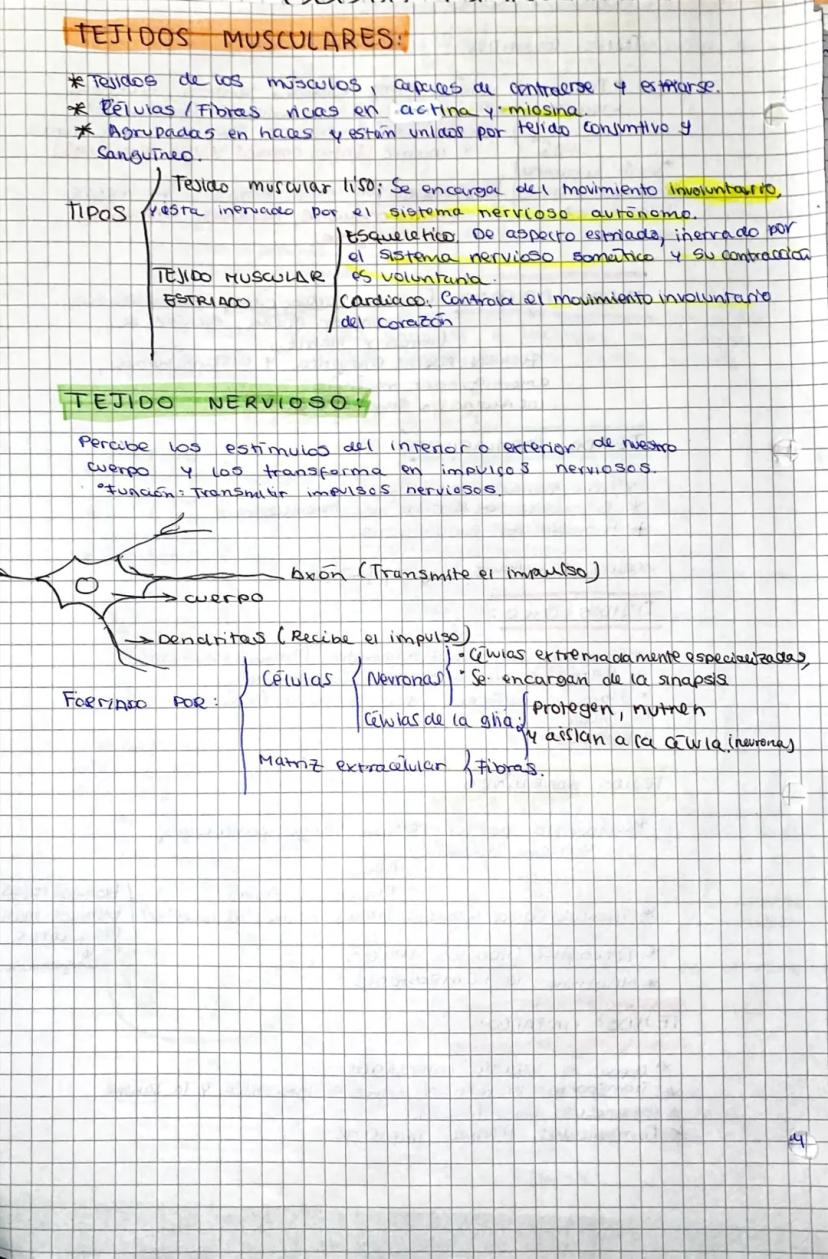 TEJIDOS MUSCULARES:
* Tejidos de los músculos, capaces de contraerse y estirarse.
* Células / Fibras ricas en actina y miosina.
* Agrupadas en haces y están unidos por tejido conjuntivo y
sanguíneo.
TIPOS
Tejido muscular liso; Se encarga del movimiento involuntario,
y esta inervado por el sistema nervioso autónomo.
TEJIDO MUSCULAR
ESTRIADO
Esqueletico. De aspecto estriado, inerrado por
el sistema nervioso somático y su contracción
es voluntaria.
Cardiaco. Controla el movimiento involuntario
del corazón
TEJIDO NERVIOSO:
Percibe los estímulos del interior o exterior de nuestro
cuerpo y los transforma en impulsos nerviosos.
°Función: Transmitir impulsos nerviosos.
Axón (Transmite el impulso)
→ cuerpo
→ Dendritas (Recibe el impulso)
FORMADO POR:
Células
Neuronas
• Células extremadamente especializadas,
• Se encargan de la sinapsis
Células de la glia:
Protegen, nutren
y aíslan a la célula (neuronas)
Matriz extracelular { Fibras.
4